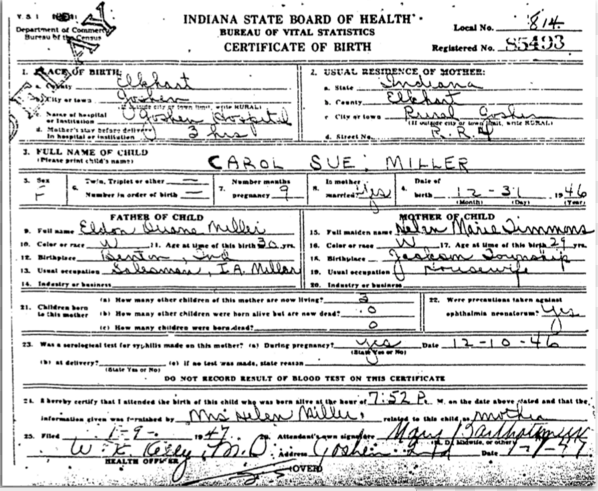 V. S. 1
INDIANA STATE BOARD OF HEALTH
Local No. 814
Department of Commerce
Bureau of the Census
BUREAU OF VITAL STATISTICS
CERTIFICATE OF BIRTH
Registered No. 85493
1. PLACE OF BIRTH:
a. County Elkhart
b. City or town Goshen
(If outside city or town limit, write RURAL)
c. Name of hospital or Institution Goshen Hospital
d. Mother's stay before delivery in hospital or institution 3 hrs
2. USUAL RESIDENCE OF MOTHER:
a. State Indiana
b. County Elkhart
c. City or town Rural Goshen
(If outside city or town limit, write RURAL)
d. Street No. R.R. 4
3. FULL NAME OF CHILD
(Please print child's name) CAROL SUE MILLER
5. Sex F
6. Twin, Triplet or other —
Number in order of birth —
7. Number months pregnancy 9
8. Is mother married? Yes
4. Date of birth 12-31 1946
(Month) (Day) (Year)
FATHER OF CHILD
9. Full name Eldon Duane Miller
10. Color or race W 11. Age at time of this birth 30 yrs.
12. Birthplace Benton, Ind
13. Usual occupation Salesman, I.A. Miller
14. Industry or business
MOTHER OF CHILD
15. Full maiden name Helen Marie Simmons
16. Color or race W 17. Age at time of this birth 29 yrs.
18. Birthplace Jackson Township
19. Usual occupation Housewife
20. Industry or business
21. Children born to this mother
(a) How many other children of this mother are now living? 3
(b) How many other children were born alive but are now dead? 0
(c) How many children were born dead? 0
22. Were precautions taken against ophthalmia neonatorum? Yes
23. Was a serological test for syphilis made on this mother? (a) During pregnancy? yes Date 12-10-46
(State Yes or No)
(b) at delivery? (c) if no test was made, state reason
(State Yes or No)
DO NOT RECORD RESULT OF BLOOD TEST ON THIS CERTIFICATE
24. I hereby certify that I attended the birth of this child who was born alive at the hour of 7:52 P. M. on the date above stated and that the
information given was furnished by Mrs Helen Miller, related to this child as mother
25. Filed 1-9- 1947 26. Attendant's own signature
M. D., midwife, or other)
M.D. Address Goshen Ind Date
HEALTH OFFICER
(OVER)